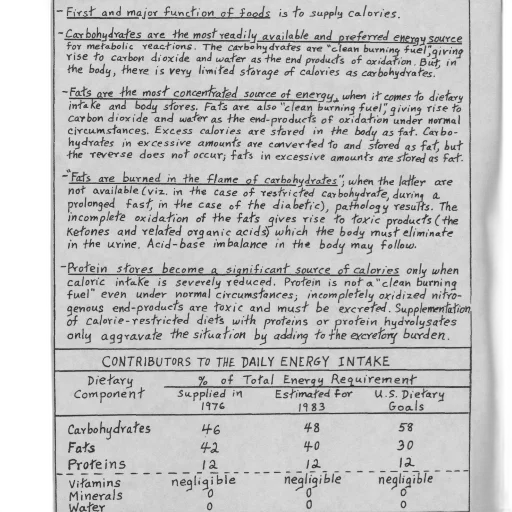 - First and major function of foods is to supply calories.
- Carbohydrates are the most readily available and preferred energy source
for metabolic reactions. The carbohydrates are "clean burning fuel", giving
rise to carbon dioxide and water as the end products of oxidation. But, in
the body, there is very limited storage of calories as carbohydrates.
- Fats are the most concentrated source of energy, when it comes to dietary
intake and body stores. Fats are also "clean burning fuel", giving rise to
carbon dioxide and water as the end-products of oxidation under normal
circumstances. Excess calories are stored in the body as fat. Carbo-
hydrates in excessive amounts are converted to and stored as fat, but
the reverse does not occur; fats in excessive amounts are stored as fat.
- "Fats are burned in the flame of carbohydrates"; when the latter are
not available (viz. in the case of restricted carbohydrate, during a
prolonged fast, in the case of the diabetic), pathology results. The
incomplete oxidation of the fats gives rise to toxic products (the
ketones and related organic acids) which the body must eliminate
in the urine. Acid-base imbalance in the body may follow.
- Protein stores become a significant source of calories only when
caloric intake is severely reduced. Protein is not a "clean burning
fuel" even under normal circumstances; incompletely oxidized nitro-
genous end-products are toxic and must be excreted. Supplementation
of calorie-restricted diets with proteins or protein hydrolysates
only aggravate the situation by adding to the excretory burden.
CONTRIBUTORS TO THE DAILY ENERGY INTAKE
Dietary % of Total Energy Requirement
Component Supplied in Estimated for U.S. Dietary
1976 1983 Goals
Carbohydrates 46 48 58
Fats 42 40 30
Proteins 12 12 12
Vitamins negligible negligible negligible
Minerals 0 0 0
Water 0 0 0